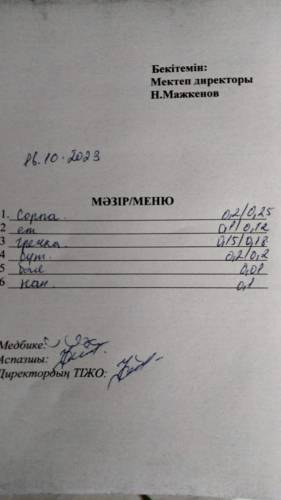 Бекітемін:
Мектеп директоры
Н.Мажкенов
16.10.2023
МӘЗІР/МЕНЮ
1. Сорпа. 0,2/0,25
2 ет 0,1/0,12
3 гречка 0,15/0,18
4 0,2/0,2
5 0,01
6 нан. 0,1
Медбике:
Аспазшы:
Директордың ТІЖО: